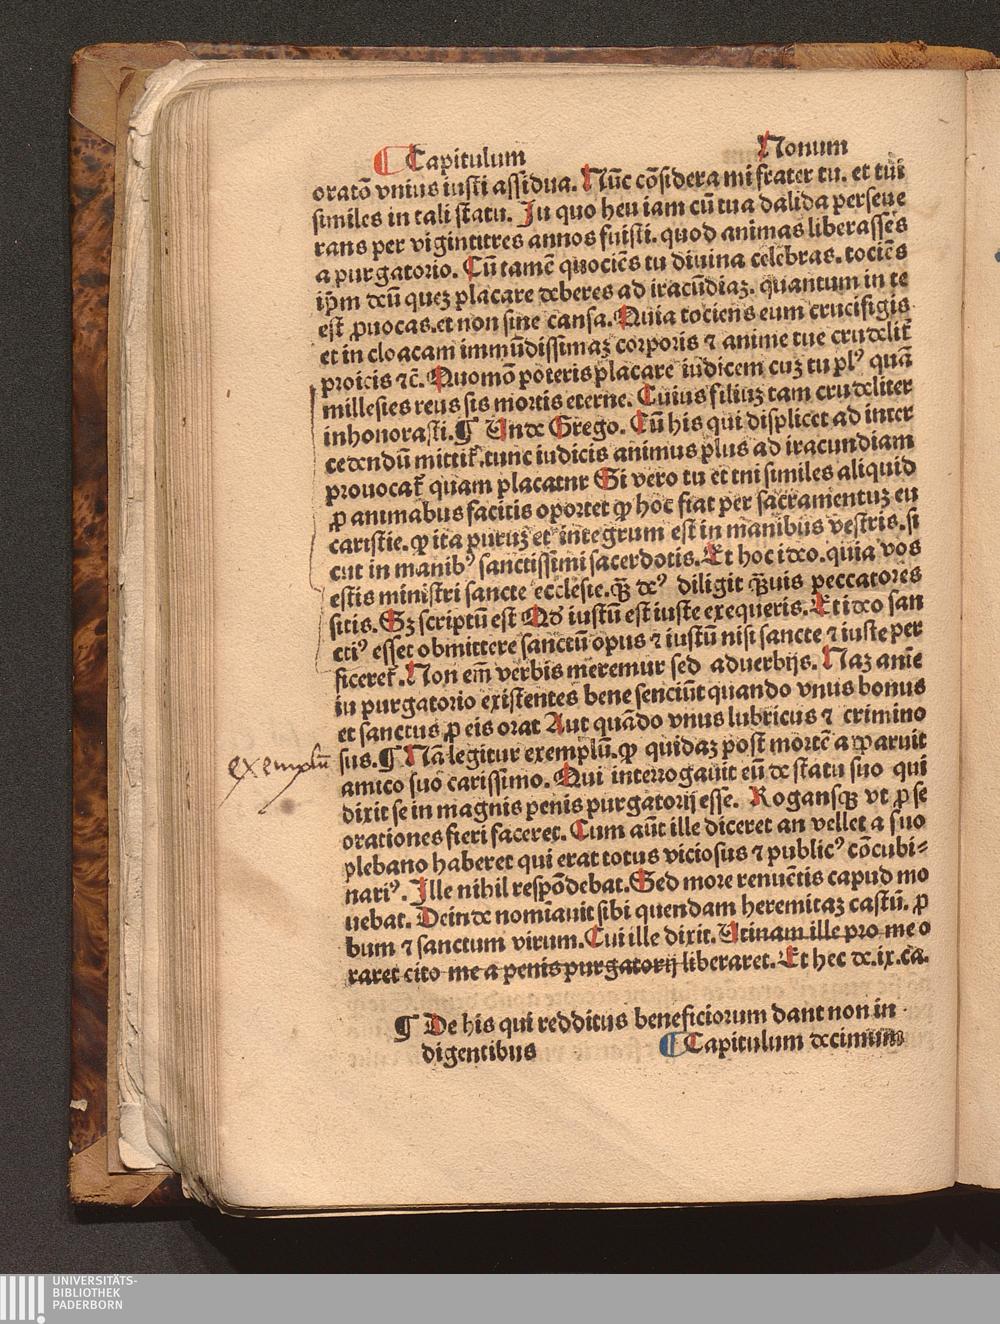 ¶ Capitulum Nonum
oratō vnius iusti assidua. Nūc cōsidera mi frater tu. et tui
similes in tali statu. In quo heu iam cū tua dalida perseue
rans per vigintitres annos fuisti. quod animas liberasses
a purgatorio. Cū tamē quociēs tu diuina celebras. tociēs
ip̄m deū quez placare deberes ad iracūdiaz. quantum in te
est ꝓuocas. et non sine causa. Quia tociens eum crucifigis
et in cloacam immūdissimaz corporis ⁊ anime tue crudelit̄
proicis ⁊c̄. Quomō poteris placare iudicem cuz tu plꝰ quā
millesies reus sis mortis eterne. Cuius filiuz tam crudeliter
inhonorasti. ¶ Unde Grego. Cū his qui displicet ad inter
cedendū mittit᷑. tunc iudicis animus plus ad iracundiam
prouocat᷑ quam placatur Si vero tu et tui similes aliquid
ꝓ animabus facitis oportet ꝙ hoc fiat per sacramentuz eu
caristie. ꝙ ita puruz et integrum est in manibus vestris. si
cut in manibꝰ sanctissimi sacerdotis. Et hoc ideo. quia vos
estis ministri sancte ecclesie. quā deꝰ diligit quāuis peccatores
sitis. Sz scriptū est Qd iustū est iuste exequeris. Et ideo san
ctiꝰ esset obmittere sanctū opus ⁊ iustū nisi sancte ⁊ iuste per
ficeret᷑. Non em̄ verbis meremur sed aduerbijs. Naz anīe
in purgatorio existentes bene senciūt quando vnus bonus
et sanctus ꝓ eis orat Aut quādo vnus lubricus ⁊ crimino
sus. ¶ Nā legitur exemplū. ꝙ quidaz post mortē apparuit
exemplū
amico suo carissimo. Qui interrogauit eū de statu suo qui
dixit se in magnis penis purgatorij esse. Rogansqꝫ vt ꝓ se
orationes fieri faceret. Cum aūt ille diceret an vellet a suo
plebano haberet qui erat totus viciosus ⁊ publicꝰ cōcubi=
nariꝰ. Ille nihil respōdebat. Sed more renuētis capud mo
uebat. Deinde nomīauit sibi quendam heremitaz castū. ꝓ
bum ⁊ sanctum virum. Cui ille dixit. Utinam ille pro me o
raret cito me a penis purgatorij liberaret. Et hec de. ix. ca.
¶ De his qui redditus beneficiorum dant non in
digentibus ¶ Capitulum decimum
UNIVERSITÄTS-
BIBLIOTHEK
PADERBORN